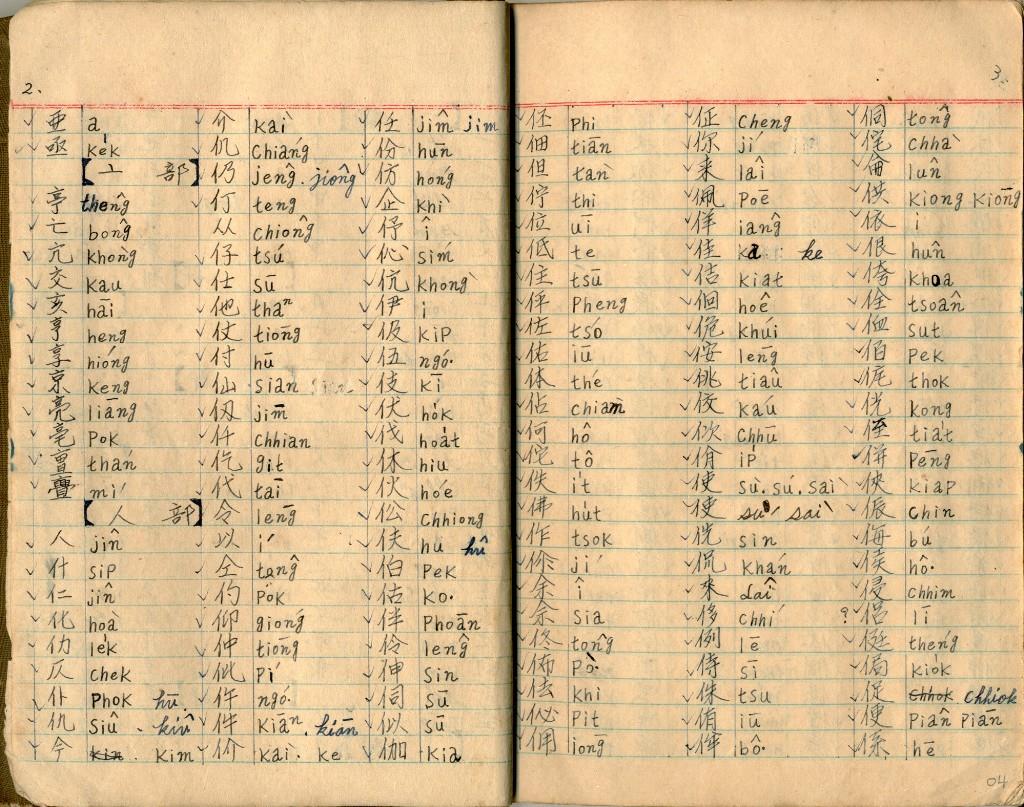 2.
亜 a
亟 ke̍k
【亠 部】
亭 thêng
亡 bông
亢 khòng
交 kau
亥 hāi
亨 heng
享 hióng
京 keng
亮 liāng
亳 Pok
亶 thán
亹 mí
【人 部】
人 jîn
什 sip
仁 jîn
化 hoà
仂 le̍k
仄 chek
仆 Phok hū.
仇 Siû. kiû
今 kin. Kim
介 Kaì
仉 Chiáng
仍 jêng. jiông
仃 teng
从 Chiông
仔 tsú
仕 Sū
他 thaⁿ
仗 tiōng
付 hū
仙 Sian
仞 jīm
仟 Chhian
仡 git
代 taī
令 lēng
以 í
仝 tâng
仢 Po̍k
仰 gióng
仲 tiōng
仳 Pí
仵 ngó͘
件 Kiāⁿ. kiān
价 Kaì. ke
任 jîm jim
份 hūn
仿 hóng
企 Khì
伃 î
伈 sím
伉 khòng
伊 i
伋 Kip
伍 ngó͘
伎 Kī
伏 ho̍k
伐 hoa̍t
休 hiu
伙 hóe
伀 Chhiong
伕 hu hû
伯 Pek
估 Ko͘
伴 Phoān
伶 lêng
伸 Sin
伺 Sū
似 Sū
伽 Kia
3.
伾 Phi
佃 tiān
但 tàn
佇 thì
位 uī
低 te
住 tsū
伻 Pheng
佐 tsó
佑 iū
体 thé
佔 chiàm
何 hô
佗 tô
佚 i̍t
佛 hu̍t
作 tsok
你 jí
余 î
佘 Sia
佟 tông
佈 Pò͘
佉 Khi
佖 Pit
佣 iōng
佂 Cheng
你 jí
来 laî
佩 Poē
佯 iâng
佳 ka ke
佶 Kiat
佪 hoê
佹 Khúi
佞 lēng
佻 tiaû
佼 Kaú
佽 Chhù
佾 ip
使 Sù. sú. saì
使 sú saì
侁 sin
侃 Khán
来 laî
侈 Chhí
例 lē
侍 sī
侏 tsu
侑 iū
侔 bô͘
侗 tông
侘 Chhà
侖 lûn
供 Kiong Kiōng
依 i
佷 hûn
侉 Khoa
佺 tsoân
侐 Sut
佰 Pek
侂 thok
侊 kong
侄 tia̍t
併 Pēng
俠 Kiap
侲 Chin
侮 bú
侯 hô͘
侵 Chhim
?侶 lī
侹 théng
侷 Kio̍k
促 Chhok chhiok
便 Piân Piān
係 hē
04